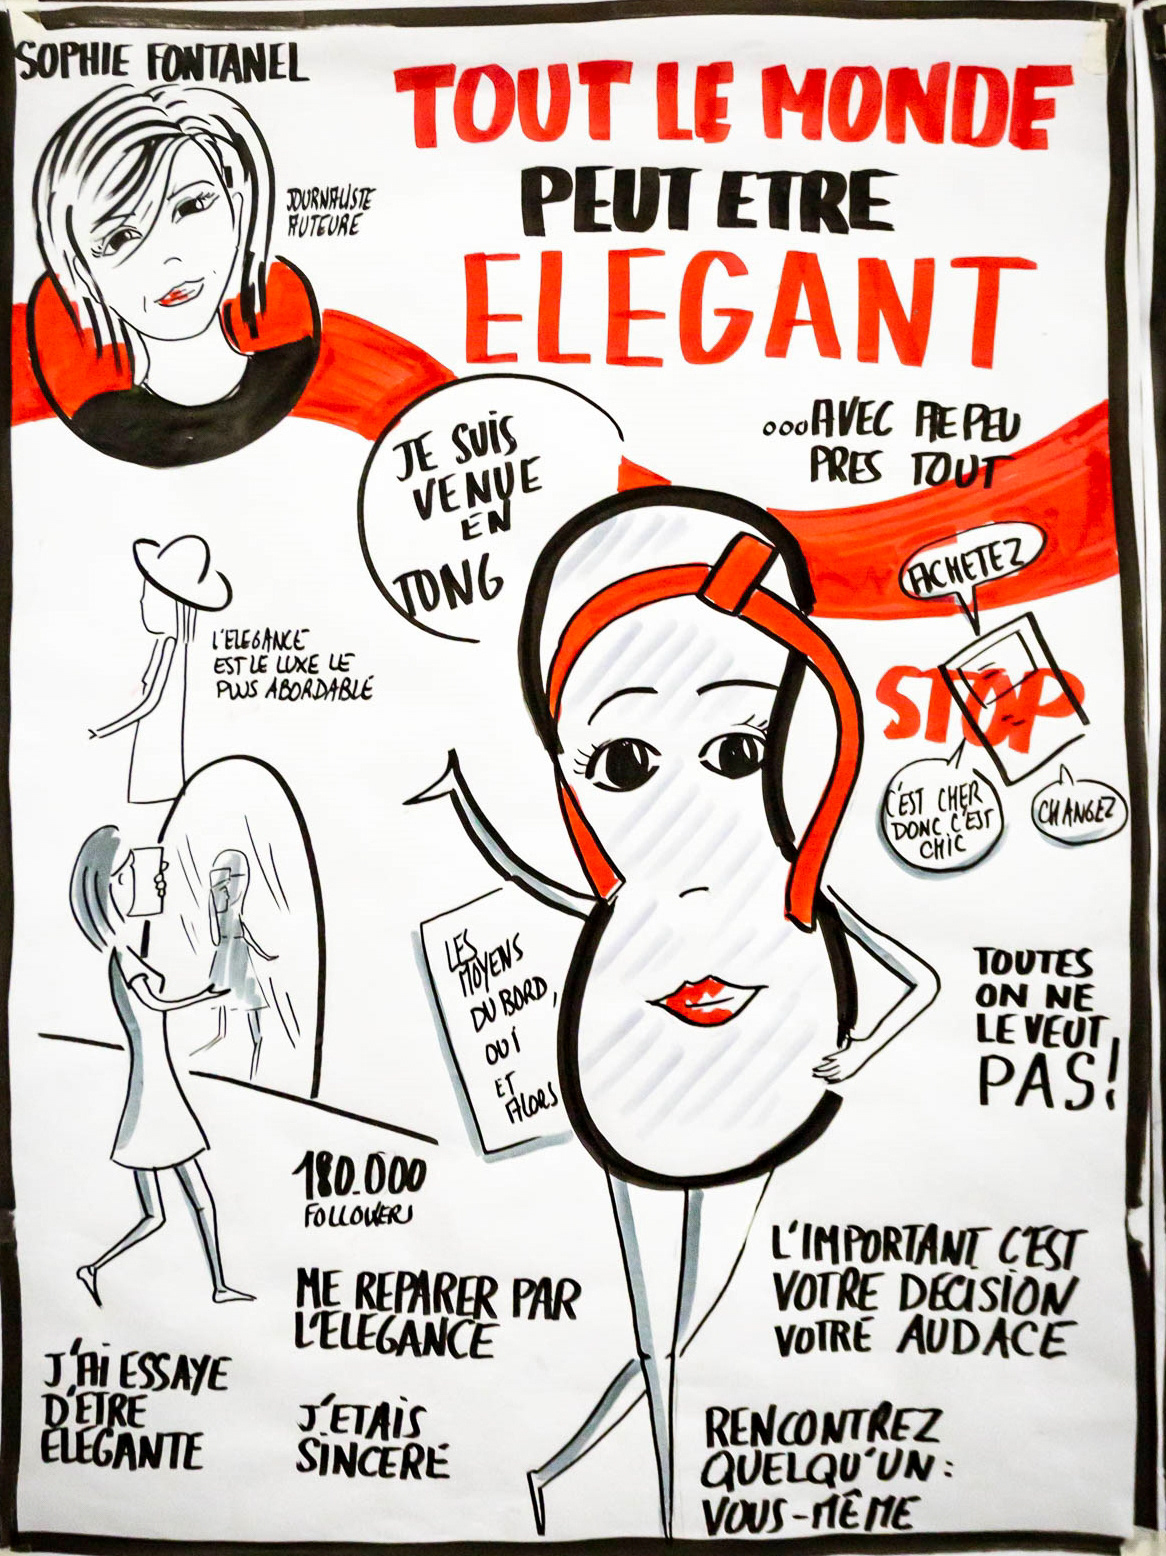 SOPHIE FONTANEL
JOURNALISTE
AUTEURE
TOUT LE MONDE
PEUT ETRE
ELEGANT
...AVEC A PEU
PRES TOUT
JE SUIS
VENUE
EN
TONG
L'ELEGANCE
EST LE LUXE LE
PLUS ABORDABLE
ACHETEZ
STOP
C'EST CHER
DONC C'EST
CHIC
CHANGEZ
LES
MOYENS
DU BORD,
OUI
ET
ALORS
TOUTES
ON NE
LE VEUT
PAS!
180.000
FOLLOWERS
ME REPARER PAR
L'ELEGANCE
J'AI ESSAYE
D'ETRE
ELEGANTE
J'ETAIS
SINCERE
L'IMPORTANT C'EST
VOTRE DECISION
VOTRE AUDACE
RENCONTREZ
QUELQU'UN:
VOUS-MÊME